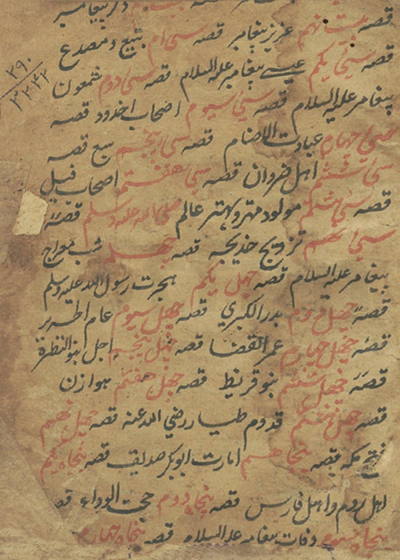 قصه بیست نهم عزیز پیغامبر قصه سی ام تبیع و مصدع
قصه سی یکم عیسے پیغامبر علیه السلام قصه سی دوم شمعون
پیغامبر علیه السلام قصه سی سیوم اصحاب اخدود قصه
سی چهارم عبادت الاصنام قصه سی پنجم سبع قصه
سی ششم اهل ضروان قصه سی هفتم اصحاب فیل
قصه سی هشتم مولود مهتر و بهتر عالم صلی الله علیه وسلم قصه
سی نهم تزویج خدیجه قصه چهلم شب معراج
پیغامبر علیه السلام قصه چهل یکم هجرت رسول الله علیه وسلم
قصه چهل دوم بدر الکبری قصه چهل سیوم عام
قصه چهل چهارم عمر القضا قصه چهل پنجم اجل بنو النظرة
قصه چهل ششم بنو قریظ قصه چهل هفتم هوازن
قصه چهل هشتم قدوم طیار رضی الله عنه قصه چهل نهم
فتح مکه قصه پنجاهم امارت ابوبکر صدیق قصه پنجاه یکم
اهل روم و اهل فارس قصه پنجاه دوم حجت الوداع قصه
پنجاه سیوم وفات پیغامبر علیه السلام قصه پنجاه چهارم
۲۹۰
۲۲۴۲